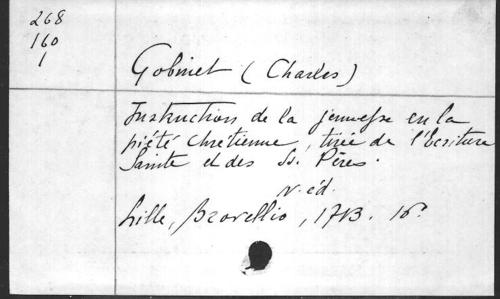 268
160
1
Gobinet (Charles)
Instruction de la jeunesse en la
piété chrétienne, tirée de l'Ecriture
Sainte et des SS. Pères.
N. éd.
Lille, Brovellio, 1713. 16º